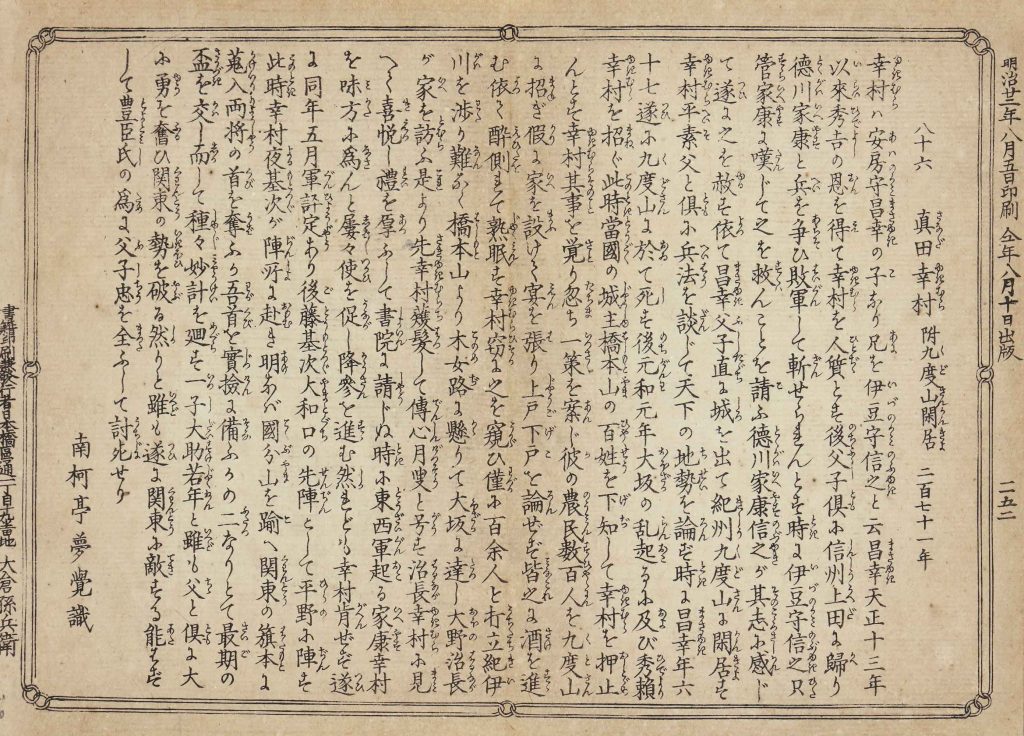 明治廿三年八月五日印刷 仝年八月十日出版
八十六 真田幸村 附九度山閑居 二百七十一年 二五二
幸村ハ安房守昌幸の子なり兄を伊豆守信之と云昌幸天正十三年
以來秀吉の恩を得て幸村を人質とす後父子倶に信州上田に歸り
德川家康と兵を争ひ敗軍して斬せられんとす時に伊豆守信之只
管家康に嘆じて之を救んことを請ふ德川家康信之が其志に感じ
て遂に之を赦す依て昌幸父子直に城を出て紀州九度山に閑居す
幸村平素父と倶に兵法を談じて天下の地勢を論ず時に昌幸年六
十七遂に九度山に於て死す後元和元年大坂の乱起るに及び秀賴
幸村を招ぐ此時當國の城主橋本山の百姓を下知して幸村を押止
んとす幸村其事を覚り忽ち一策を案じ彼の農民数百人を九度山
に招ぎ假に家を設けて宴を張り上戸下戸を論せず皆之に酒を進
む依て酔倒れて熟眠す幸村窃に之を窺ひ僅に百余人と打立紀伊
川を渉り難なく橋本山より木女路に懸りて大坂に達し大野沼長
が家を訪ふ是より先幸村薙髪して傳心月叟と号す沼長幸村に見
へて喜悦し禮を厚ふして書院に請じぬ時に東西軍起る家康幸村
を味方に為んと屢々使を促し降参を進む然れども幸村肯せず遂
に同年五月軍評定あり後藤基次大和口の先陣として平野に陣す
此時幸村夜基次が陣所に赴き明なバ國分山を踰へ関東の旗本に
蒐入両将の首を奪ふか吾首を實撿に備ふかの二なりとて最期の
盃を交し而して種々妙計を廻す一子大助若年と雖も父と倶に大
に勇を奮ひ関東の勢を破る然りと雖も遂に関東に敵する能はず
して豊臣氏の為に父子忠を全ふして討死せり
南柯亭夢覺識
書籍印刷兼發行者日本橋區通一丁目十九番地 大倉孫兵衛